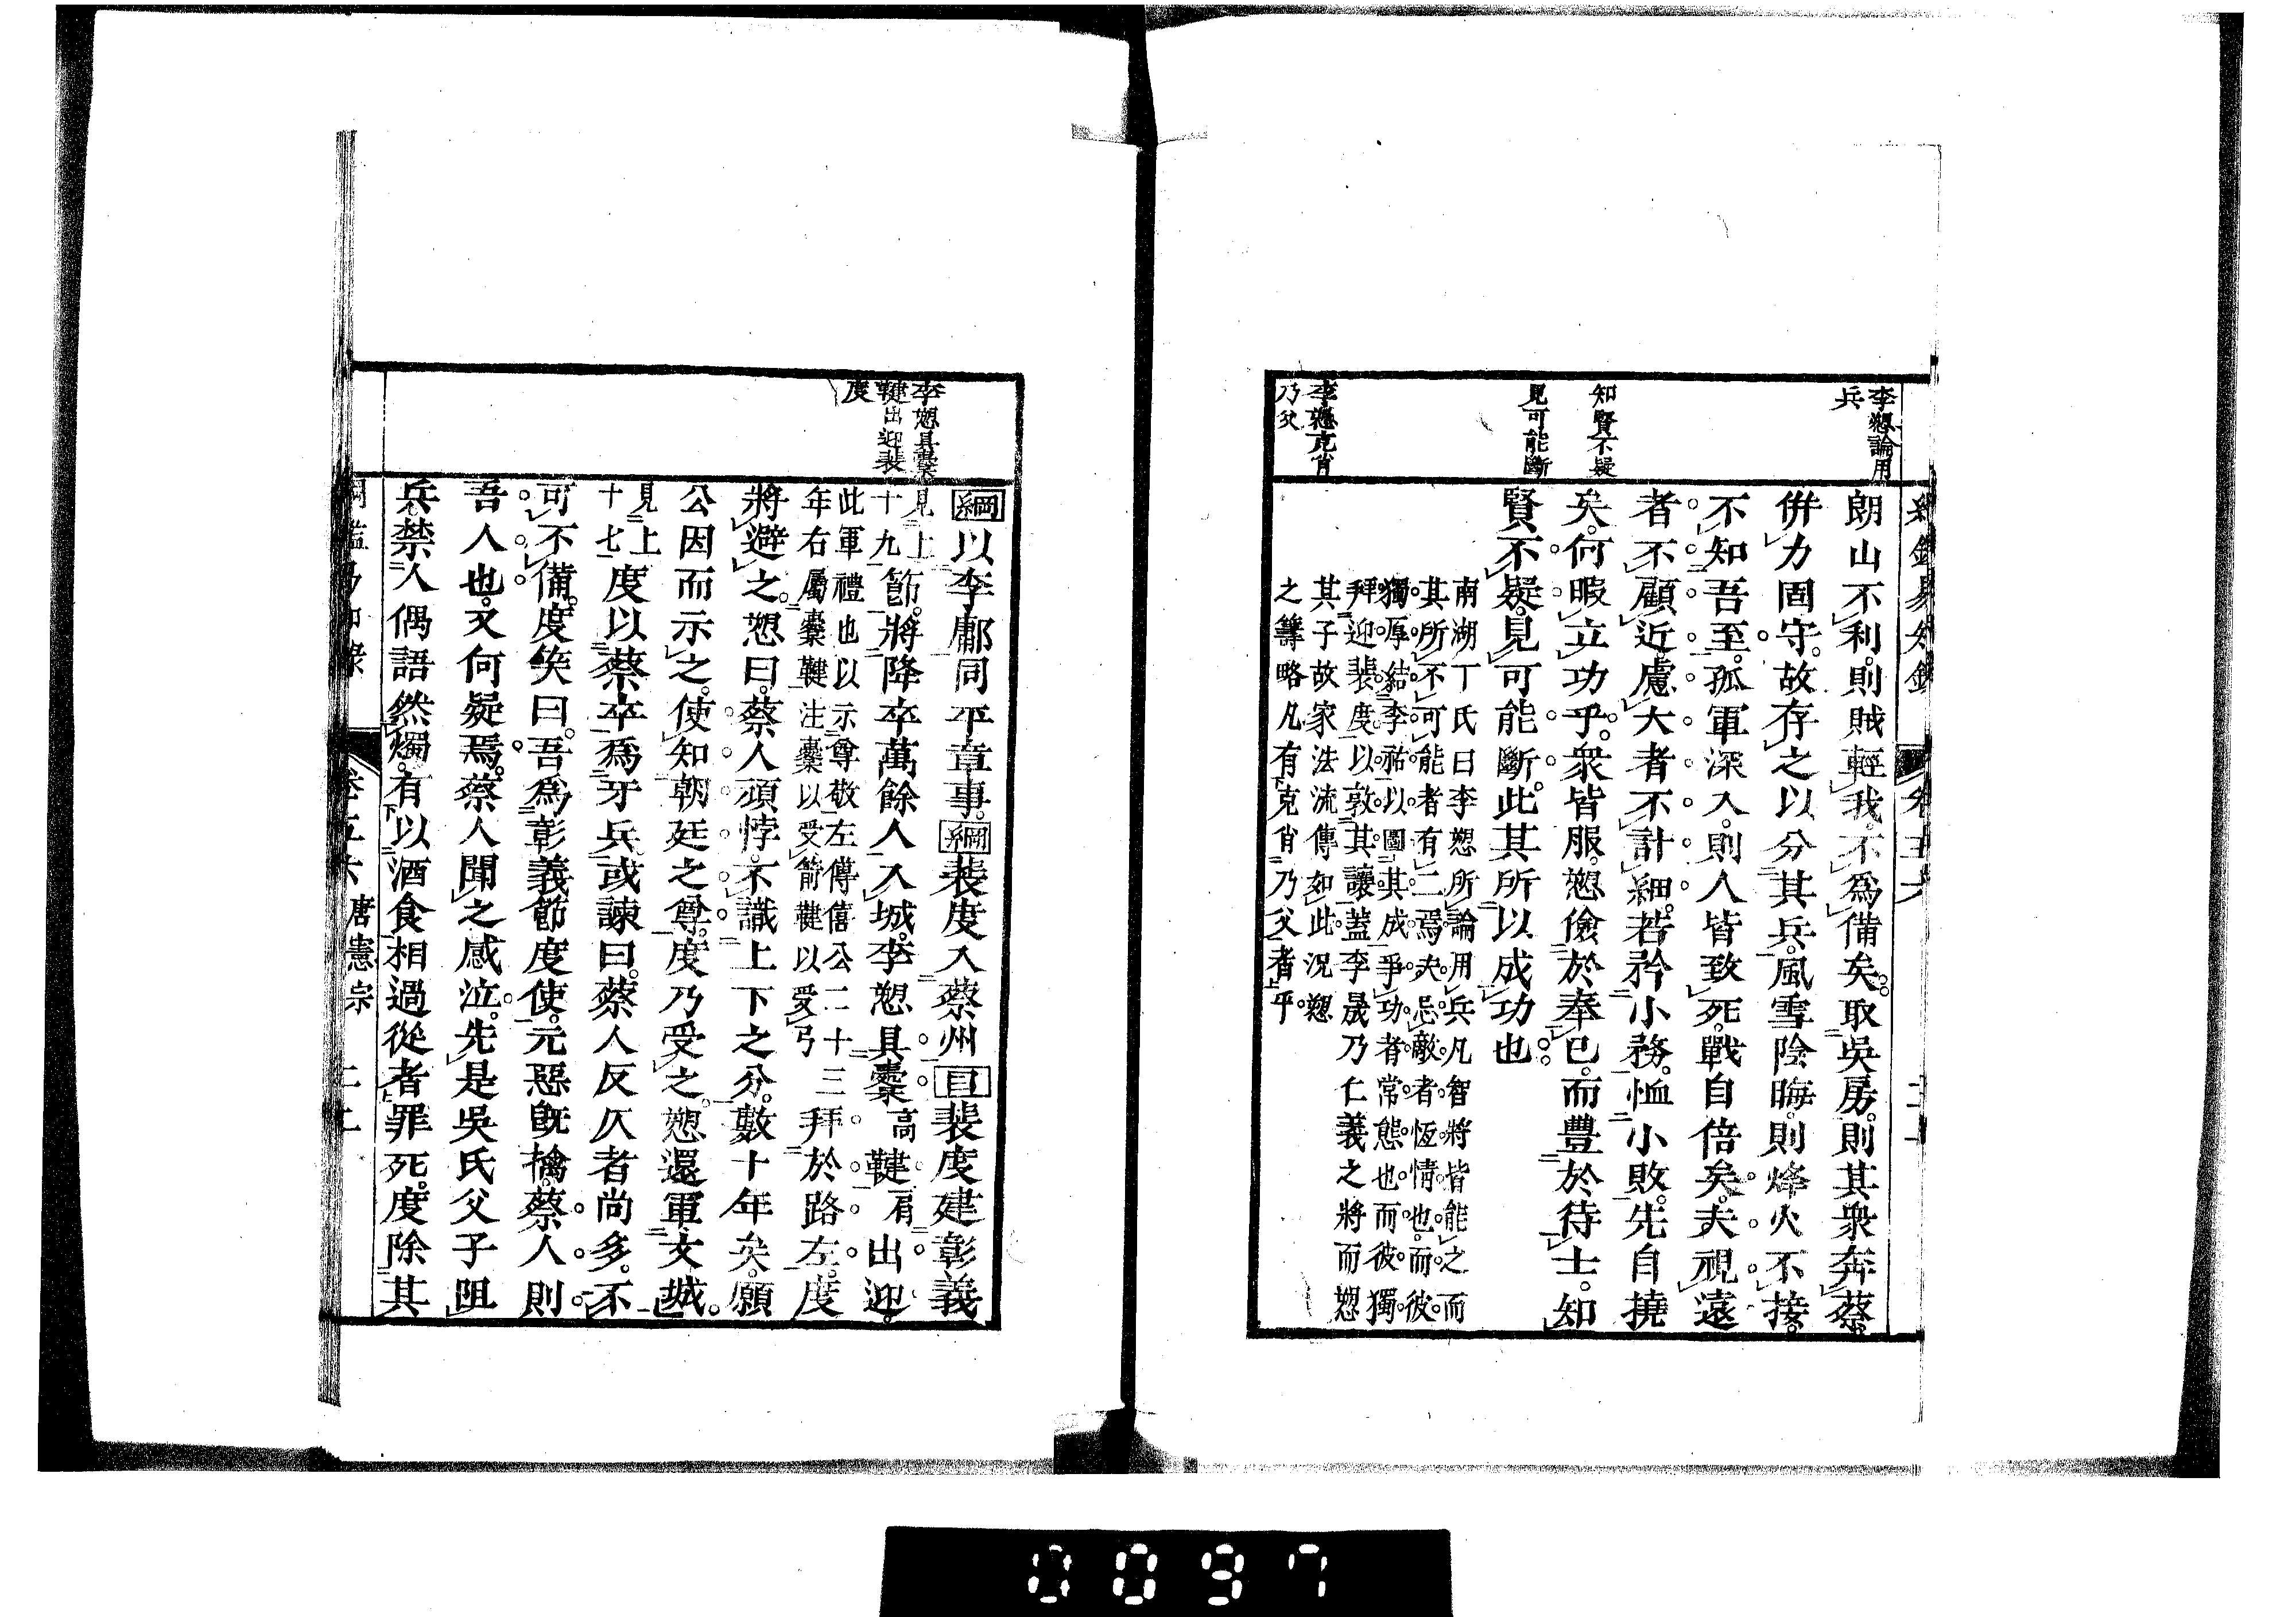 李愬論用
兵
知賢不疑
見可能斷
李愬克肖
乃父
朗山不利。則賊輕我。不爲備矣。取吳房。則其衆奔蔡。
併力固守。故存之以分其兵。風雪陰晦。則烽火不接。
不知吾至。孤軍深入。則人皆致死。戰自倍矣。夫視遠
者不顧近。慮大者不計細。若矜小務。恤小敗。先自撓
矣。何暇立功乎。衆皆服。愬儉於奉已。而豐於待士。知
賢不疑。見可能斷。此其所以成功也。
南湖丁氏曰李愬所論用兵凡智將皆能之而
其所不可能者有二焉。夫忌敵者恆情也。而彼
獨厚結李祐。以圖其成。爭功者常態也。而彼獨
拜迎裴度。以敦其讓。蓋李晟乃仁義之將而愬
其子故家法流傳如此。況愬
之籌略凡有克肖乃父者乎。
李愬具櫜
鞬出迎裴
度
綱以李鄘同平章事。綱裴度入蔡州目裴度建彰義
見上
十九節。將降卒萬餘人入城。李愬具櫜高鞬肩出迎。
此軍禮也以示尊敬左傳僖公二十三
年右屬櫜鞬注櫜以受箭鞬以受弓拜於路左。度
將避之。愬曰。蔡人頑悖。不識上下之分。數十年矣。願
公因而示之。使知朝廷之尊。度乃受之。愬還軍文城。
見上
十七度以蔡卒爲牙兵。或諫曰。蔡人反仄者尚多。不
可不備。度笑曰。吾爲彰義節度使。元惡旣擒。蔡人則
吾人也。又何疑焉。蔡人聞之感泣。先是吳氏父子阻
兵。禁人偶語然燭。有以酒食相過從者罪死。度除其
卷五六 唐憲宗